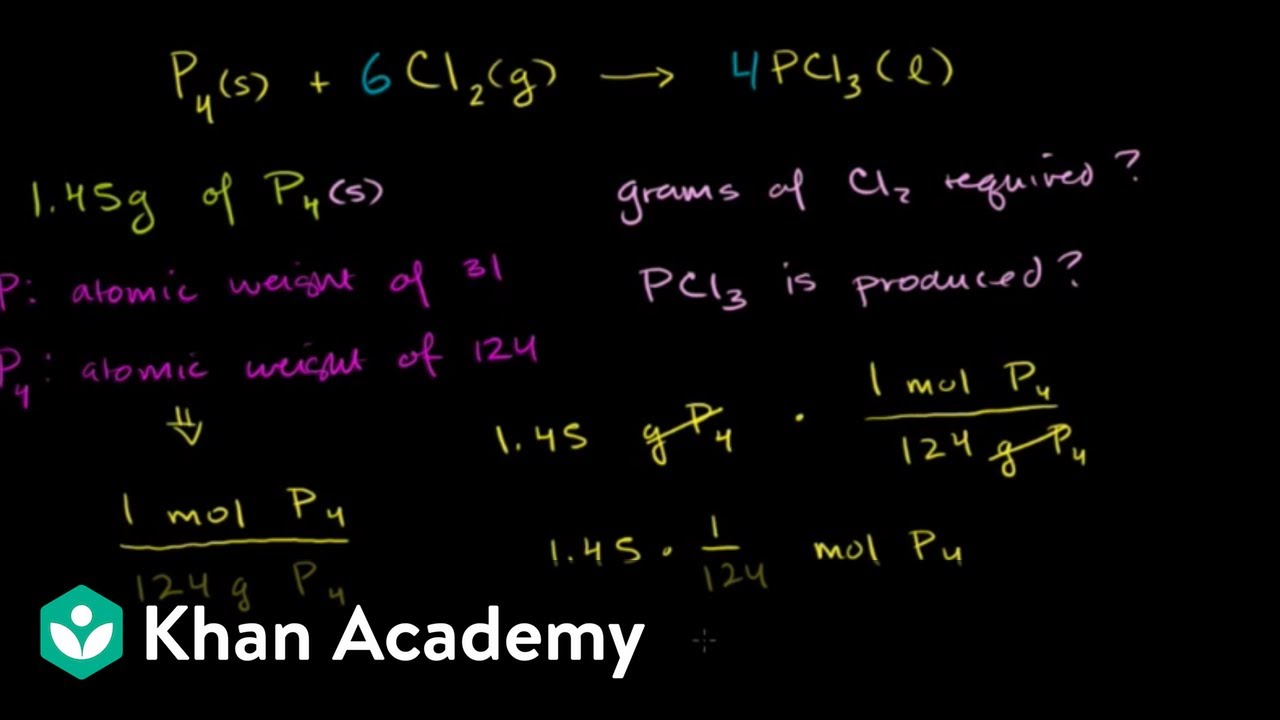 P₄(s) + 6Cl₂(g) → 4PCl₃(l)
1.45g of P₄(s)
grams of Cl₂ required?
P: atomic weight of 31
PCl₃ is produced?
P₄: atomic weight of 124
⇓
1.45 g P₄ · 1 mol P₄
124 g P₄
1 mol P₄
124 g P₄
1.45 · 1/124 mol P₄
Khan Academy